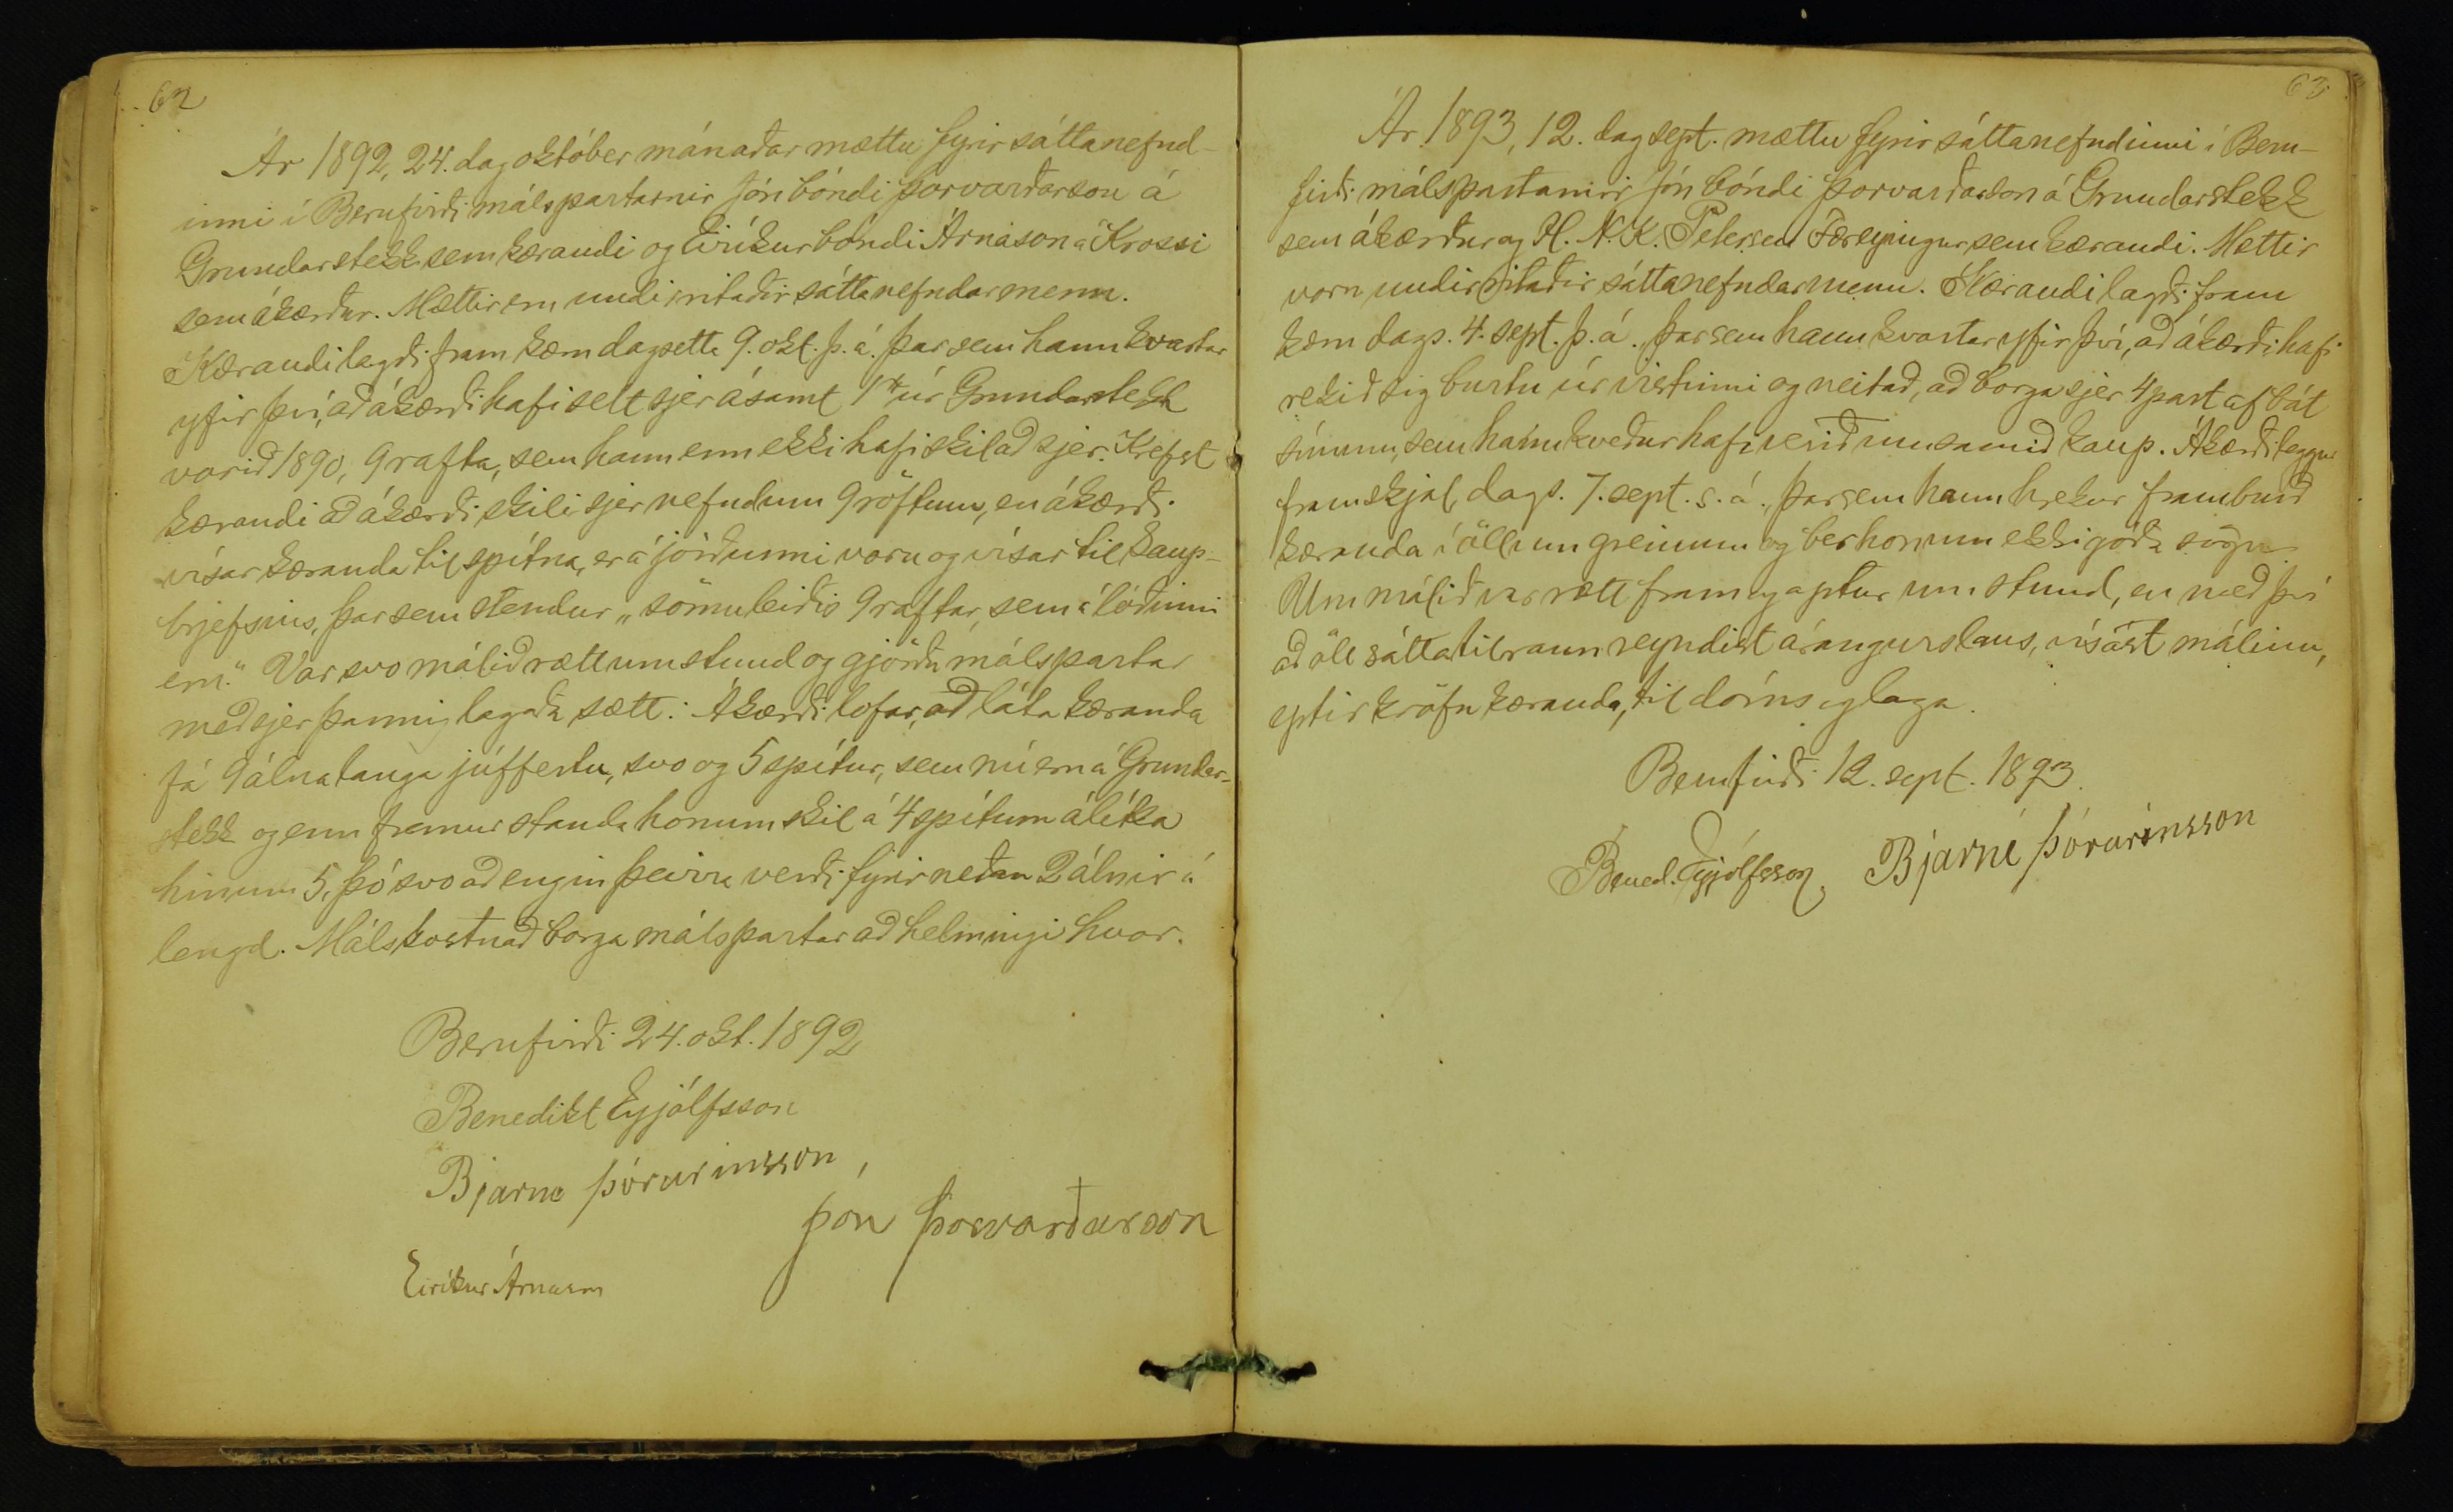 62
Ár 1892, 24. dag október mánaðar mættu fyrir sáttanefnd-
inni í Berufirði málspartarnir Jón bóndi Þorvarðarson á
Grundarstekk sem kærandi og Eiríkur bóndi Árnason á Krossi
sem ákærður. Mættir eru undirritaðir sáttanefndarmenn.
Kærandi lagði fram kæru dagsetta 9. okt. þ. á. þar sem hann kvartar
yfir því, að ákærði hafi selt sjer ásamt úr Grundarstekk
vorið 1890, 9 rafta, sem hann enn ekki hafi skilað sjer. Krefst
kærandi að ákærði skili sjer nefndum 9 röftum, en ákærði
vísar kæranda til spítna, er á jörðunni voru og vísar til kaup-
brjefsins, þar sem stendur „sömuleiðis 9 raftar, sem á lóðinni
eru." Var svo málið rætt um stund og gjörðu málspartar
með sjer þannig lagaða sætt: Ákærði lofar, að láta kæranda
fá 9 álna langa júffertu, svo og 5 spítur, sem nú eru á Grundar-
stekk og enn fremur standa honum skil á 4 spítum álíka
hinum 5, þó svo að engin þeirra verði fyrir neðan 2 álnir á
lengd. Málskostnað borga málspartar að helmingi hvor.
Berufirði 24. okt. 1892
Benedikt Eyjólfsson
Bjarne Þórarinsson,
Jón Þorvarðarson
Eiríkur Árnason
63
Ár 1893, 12. dag sept. mættu fyrir sáttanefndinni í Beru-
firði málspartarnir Jón bóndi Þorvarðarson á Grundarstekk
sem ákærður og H. N. K. Petersen Færeyingur sem kærandi. Mættir
voru undirritaðir sáttanefndarmenn. Kærandi lagði fram
kæru dags. 4. sept. þ. á. þar sem hann kvartar yfir því, að ákærði hafi
rekið sig burtu úr vistinni og neitað, að borga sjer 4 part af bát
sínum, sem hann kveður hafi verið umsamið kaup. Ákærði leggur
fram skjal, dags. 7. sept. s. á., þar sem hann hrekur framburð
kæranda í öllum greinum og ber honum ekki góða sögu.
Um málið var rætt fram og aptur um stund, en með því
að öll sáttatilraun reyndist árangurslaus, vísast málinu,
eptir kröfu kæranda, til dóms og laga.
Berufirði 12. sept. 1893.
Bened. Eyjólfsson, Bjarne Þórarinsson